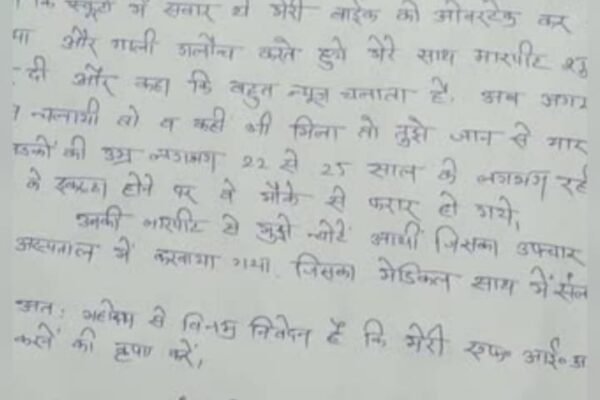 कि स्कूटी में सवार थे मेरी बाईक को ओवरटेक कर
और गाली गलौच करते हुये मेरे साथ मारपीट शु
दी और कहा कि बहुत न्यूज चलाता है, अब अगर
चलायी तो व कहीं भी मिला तो तुझे जान से मार
की उम्र लगभग 22 से 25 साल के लगभग रह
के इकट्ठा होने पर वे मौके से फरार हो गये,
उनकी मारपीट से मुझे चोटें आयी जिसका उपचार
अस्पताल में करवाया गया, जिसका मेडिकल साथ में संल
अतः महोदय से विनम्र निवेदन है कि मेरी एफ० आई० आ
करने की कृपा करें,